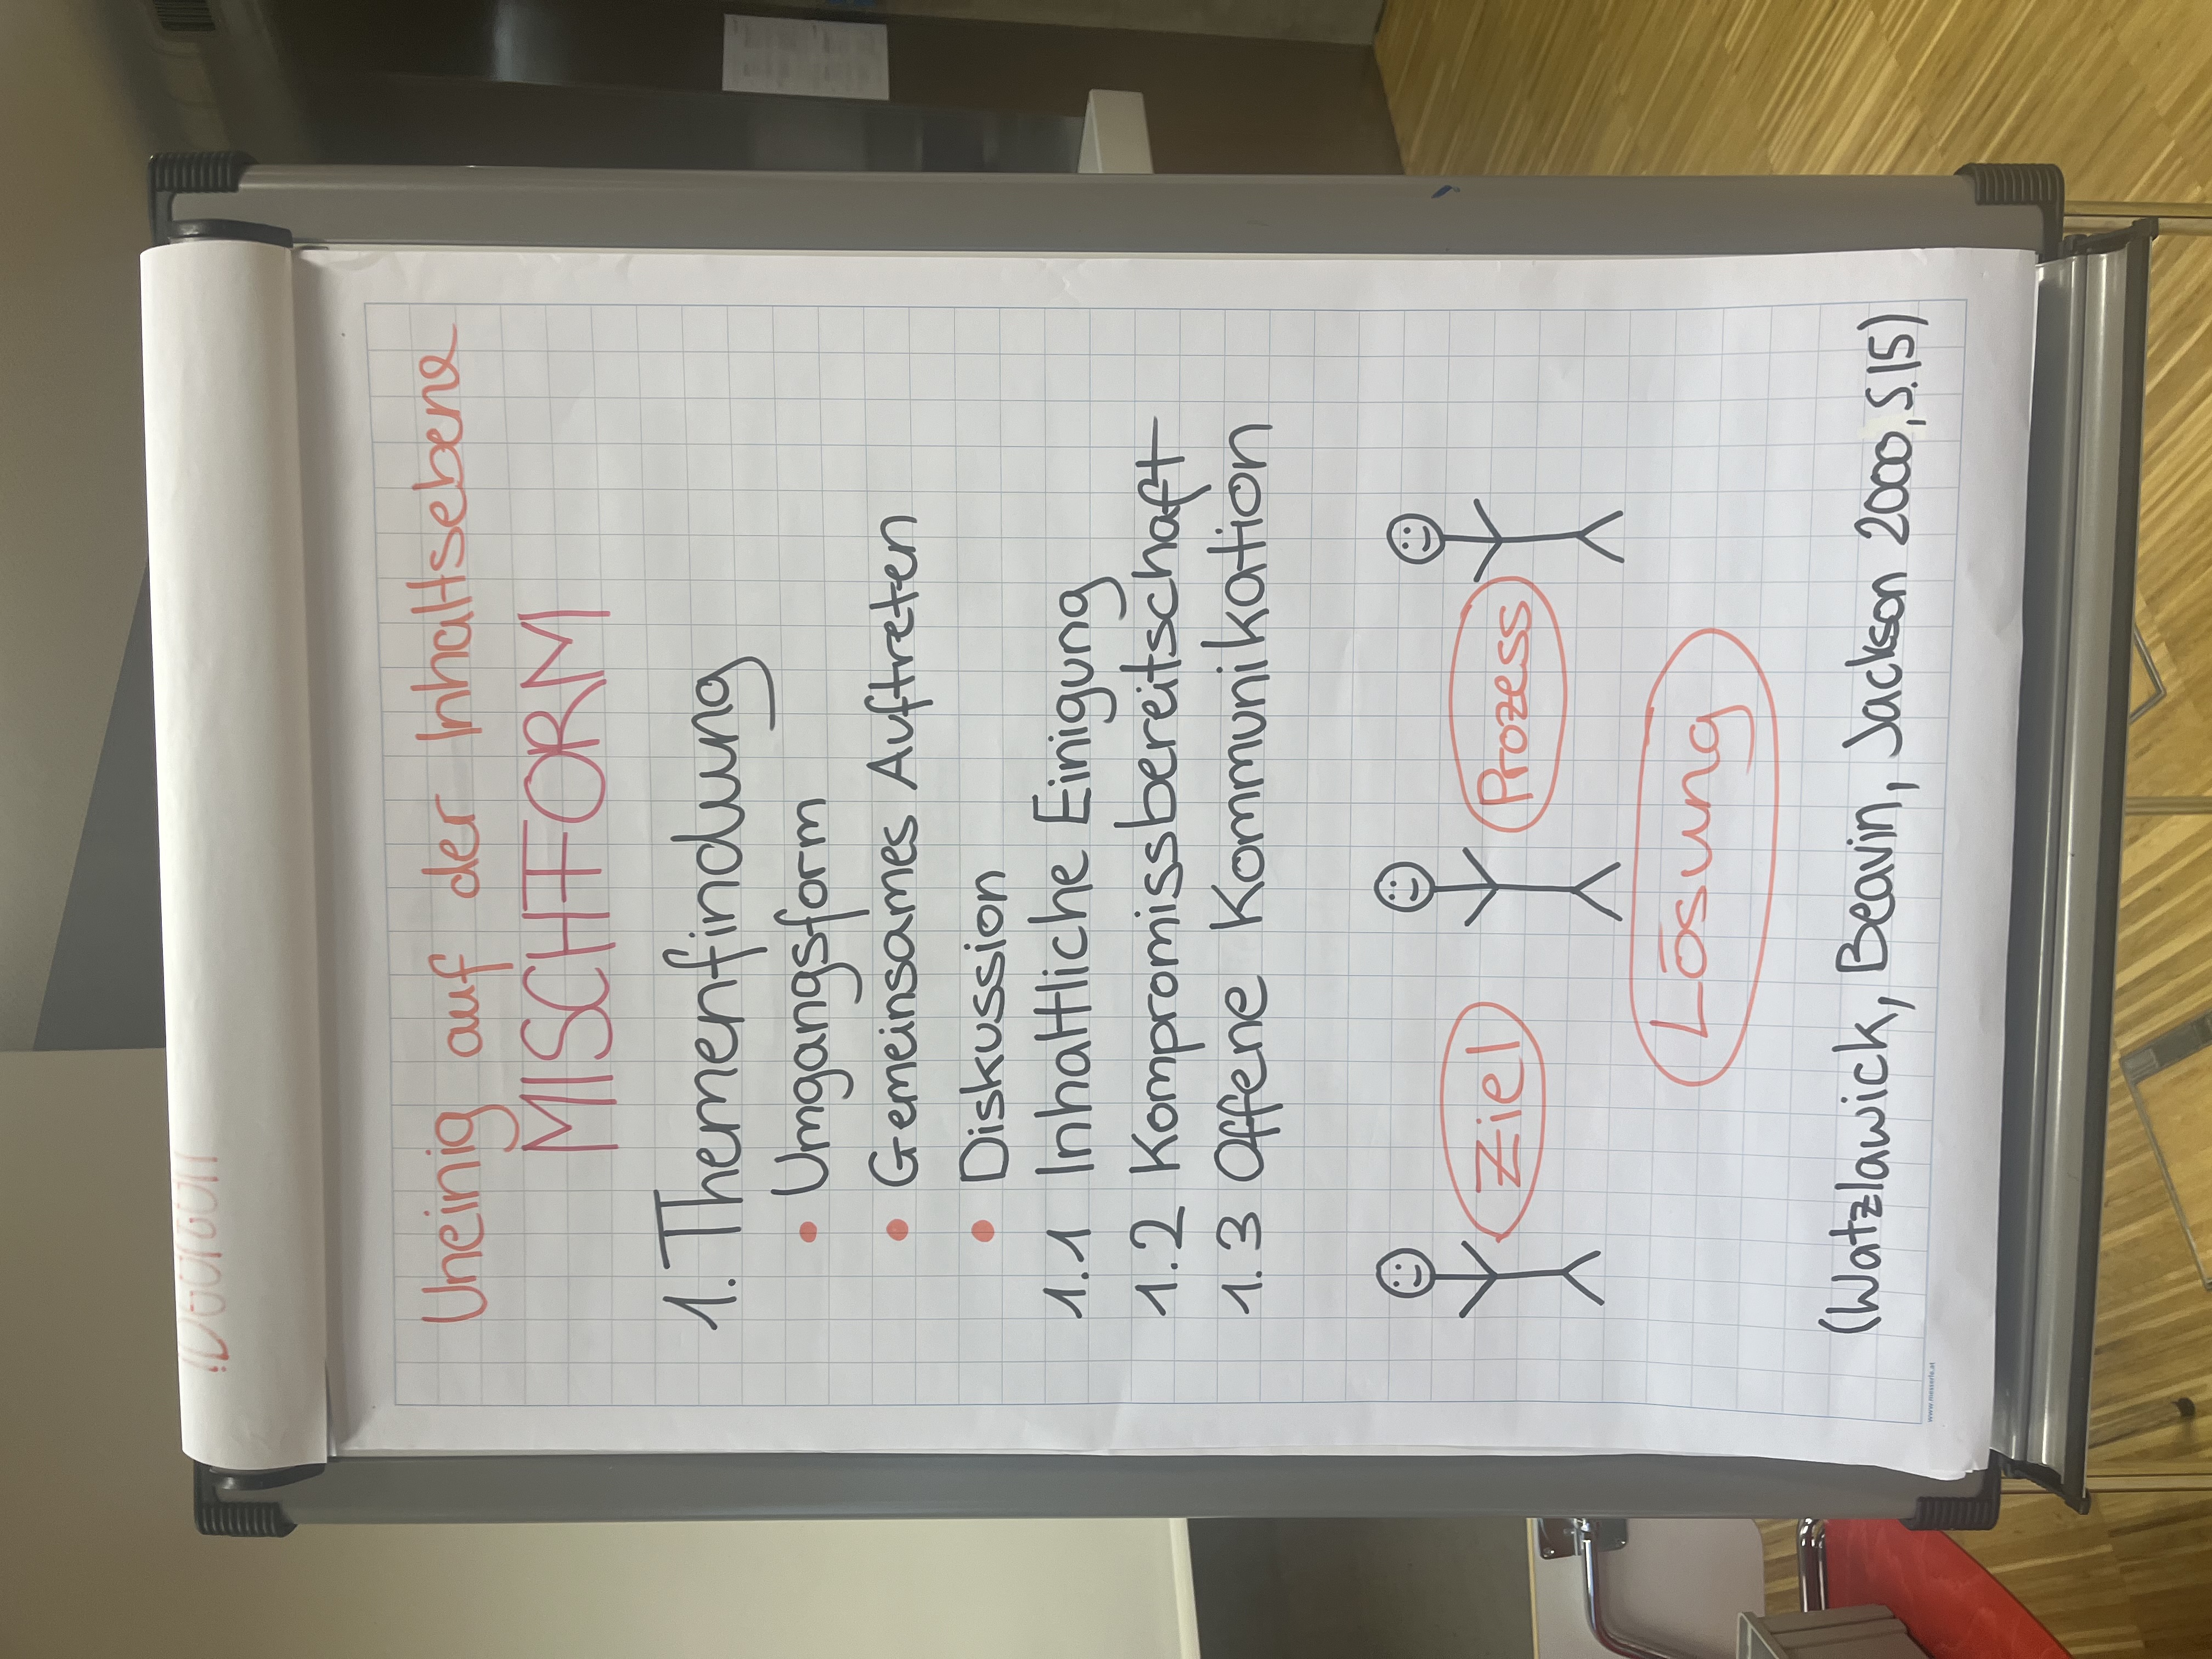 Uneinig auf der Inhaltsebene
MISCHFORM
1. Themenfindung
• Umgangsform
• Gemeinsames Auftreten
• Diskussion
1.1 Inhaltliche Einigung
1.2 Kompromissbereitschaft
1.3 Offene Kommunikation
Ziel
Prozess
Lösung
(Watzlawick, Beavin, Jackson 2000, S.15)
www.messerle.at